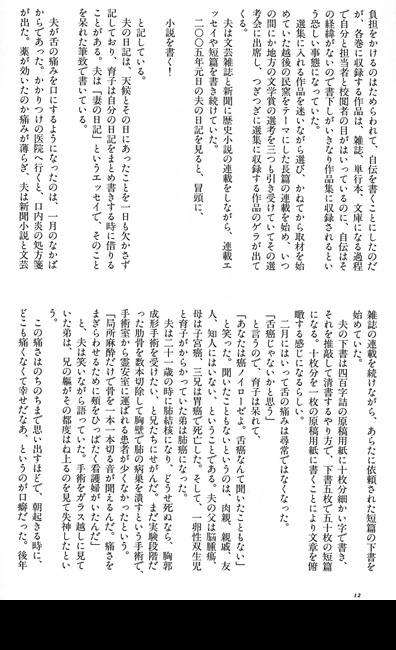 負担をかけるのはためらわれて、自伝を書くことにしたのだ
が、各巻に収録する作品は、雑誌、単行本、文庫になる過程
で自分と担当者と校閲者の目がはいっているのに、自伝はそ
の経緯がないので書下しがいきなり作品集に収録されるとい
う恐しい事態になっていた。
選集に入れる作品を迷いながら選び、かねてから取材を始
めていた越後の民窯をテーマにした長篇の連載を始め、いつ
の間にか地方の文学賞の選考を三つも引き受けていてその選
考会に出席し、つぎつぎに選集に収録する作品のゲラが出て
くる。
夫は文芸雑誌と新聞に歴史小説の連載をしながら、連載エ
ッセイや短篇を書き続けていた。
二〇〇五年元日の夫の日記を見ると、冒頭に、
小説を書く!
と記している。
夫の日記は、天候とその日にあったことを一日も欠かさず
記しており、育子は自分の日記をまとめ書きする時に借りる
ことがある。夫は「妻の日記」というエッセイで、そのこと
を呆れた筆致で書いている。
夫が舌の痛みを口にするようになったのは、一月のなかば
からであった。かかりつけの医院へ行くと、口内炎の処方箋
が出た。薬が効いたのか痛みが薄らぎ、夫は新聞小説と文芸
雑誌の連載を続けながら、あらたに依頼された短篇の下書を
始めていた。
夫の下書は四百字詰の原稿用紙に十枚分細かい字で書き、
それを推敲して清書するやり方で、下書五枚で五十枚の短篇
になる。十枚分を一枚の原稿用紙に書くことにより文章を俯
瞰する感じになるらしい。
二月にはいって舌の痛みは尋常ではなくなった。
「舌癌じゃないかと思う」
と言うので、育子は呆れて、
「あなたは癌ノイローゼよ。舌癌なんて聞いたこともない」
と笑った。聞いたこともないというのは、肉親、親戚、友
人、知人にはいない、ということである。夫の父は脳腫瘍、
母は子宮癌、三兄は胃癌で死亡した。そして、一卵性双生児
と育子がからかっていた弟は肺癌になった。
夫は二十一歳の時に肺結核になり、どうせ死ぬなら、胸郭
成形手術を受けたい、と兄たちにせがんだ。まだ実験段階だ
った肋骨を数本切除して胸壁で肺の病巣を潰すという手術で、
手術室から霊安室に運ばれる患者が少くなかったという。
「局所麻酔だけで骨を一本一本切る音が聞えるんだ。痛さを
まぎらわせるために頰をひっぱたく看護婦がいたんだ」
と、夫は笑いながら語っていた。手術をガラス越しに見て
いた弟は、兄の軀がその都度はね上るのを見て失神したとい
う。
この痛さはのちのちまで思い出すほどで、朝起きる時に、
どこも痛くなくて幸せだなあ、というのが口癖だった。後年
12